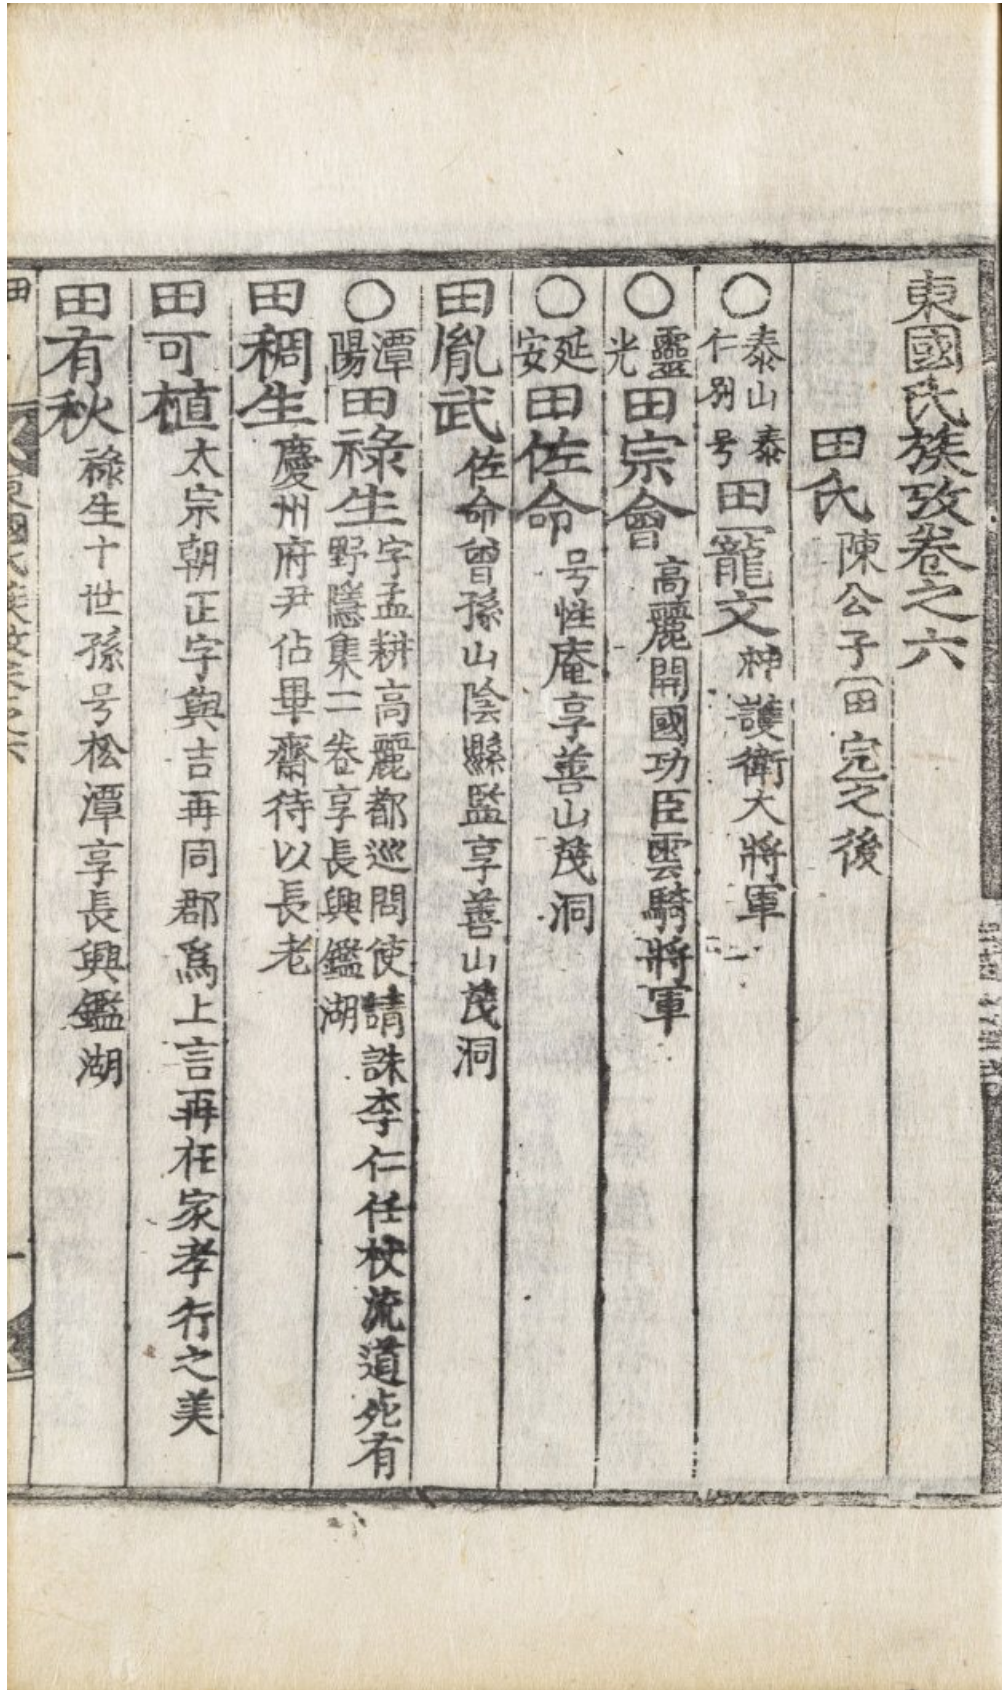 東國氏族攷卷之六
田氏 陳公子田完之後
○泰山泰仁別号田龍文 神護衛大將軍
○靈光田宗會 高麗開國功臣雲騎將軍
○延安田佐命 号性庵享善山茂洞
田胤武 佐命曾孫山陰縣監享善山茂洞
○潭陽田祿生 字孟耕高麗都巡問使請誅李仁任杖流道死有
野隱集二卷享長興鑑湖
田稠生 慶州府尹佔畢齋待以長老
田可植 太宗朝正字與吉再同郡爲上言再在家孝行之美
田有秋 祿生十世孫号松潭享長興鑑湖
田